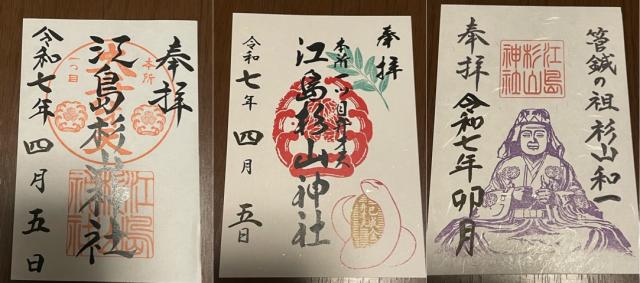 奉拝
本所
一つ目
江島杉山神社
江島
杉山
神社
令和七年
四月五日
奉拝
本所一ツ目弁才天
江島杉山神社
令和七年
四月
五日
管鍼の祖 杉山和一
江島
杉山
神社
奉拝
令和七年卯月